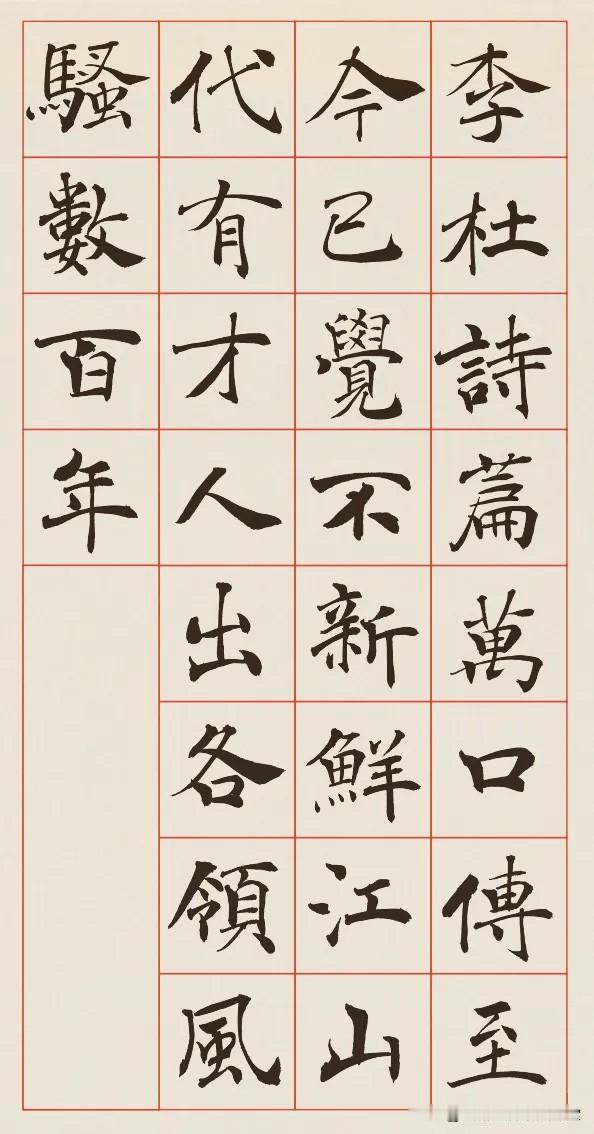 李杜詩篇萬口傳至
今已覺不新鮮江山
代有才人出各領風
騷數百年